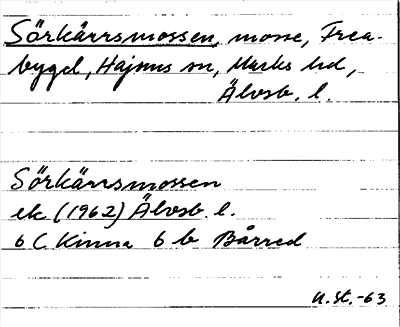 Sörkärrsmossen, mosse, Frea-
bygd, Hajoms sn, Marks hd,
Älvsb. l.
Sörkärrsmossen
ek (1962) Älvsb. l.
6 C Kinna 6 b Bårred
U.St.-63